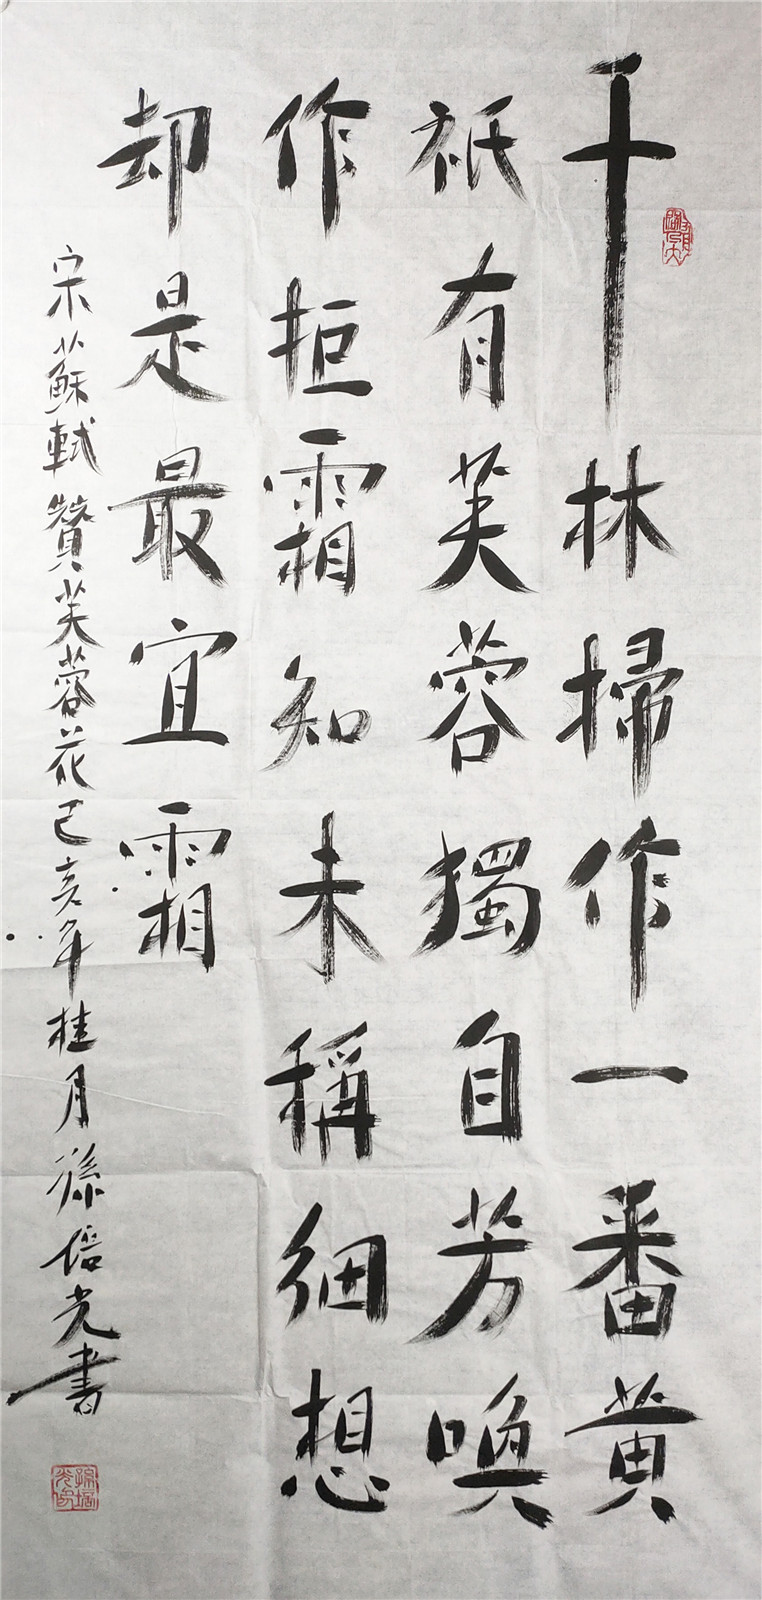 千林掃作一番黄
祇有芙蓉獨自芳喚
作拒霜知未稱細想
却是最宜霜
宋蘇軾贊芙蓉花己亥年桂月孫培光書
孫培光印